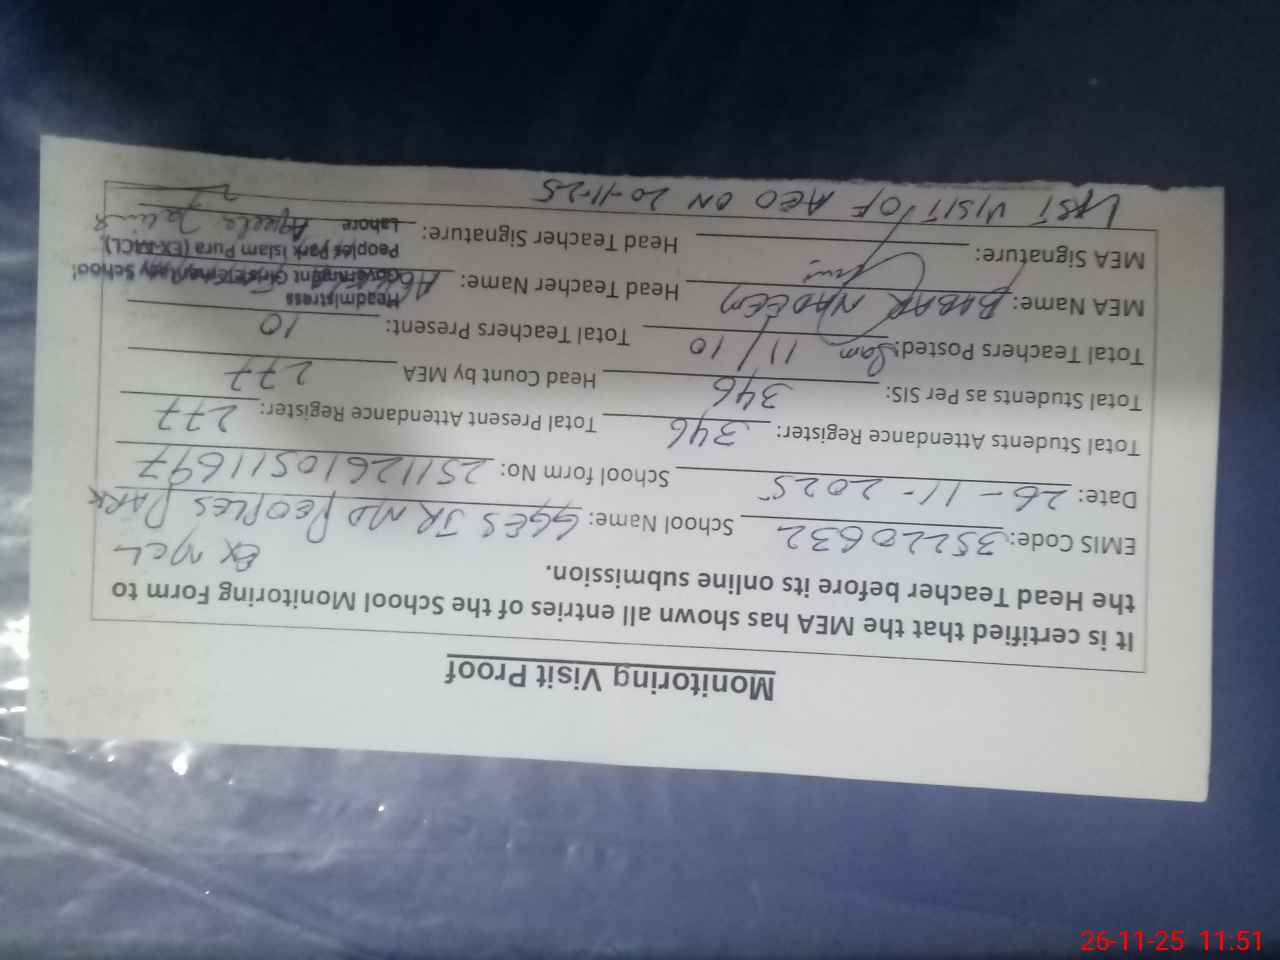 Monitoring Visit Proof
It is certified that the MEA has shown all entries of the School Monitoring Form to
the Head Teacher before its online submission.
Ex MCL
EMIS Code: 35220632 School Name: GGES JR MD PEOPLES PARK
Date: 26-11-2025 School form No: 251126105116 97
Total Students Attendance Register: 346 Total Present Attendance Register: 277
Total Students as Per SIS: 346 Head Count by MEA 277
Total Teachers Posted: 11/10 Total Teachers Present: 10
MEA Name: BABAR NADEEM Head Teacher Name:
Headmistress
Government Girls Elementary School
Peoples Park Islam Pura (EX-MCL)
Lahore
MEA Signature: Head Teacher Signature: Aqeela
LAST VISIT OF AEO ON 20-11-25
26-11-25 11:51